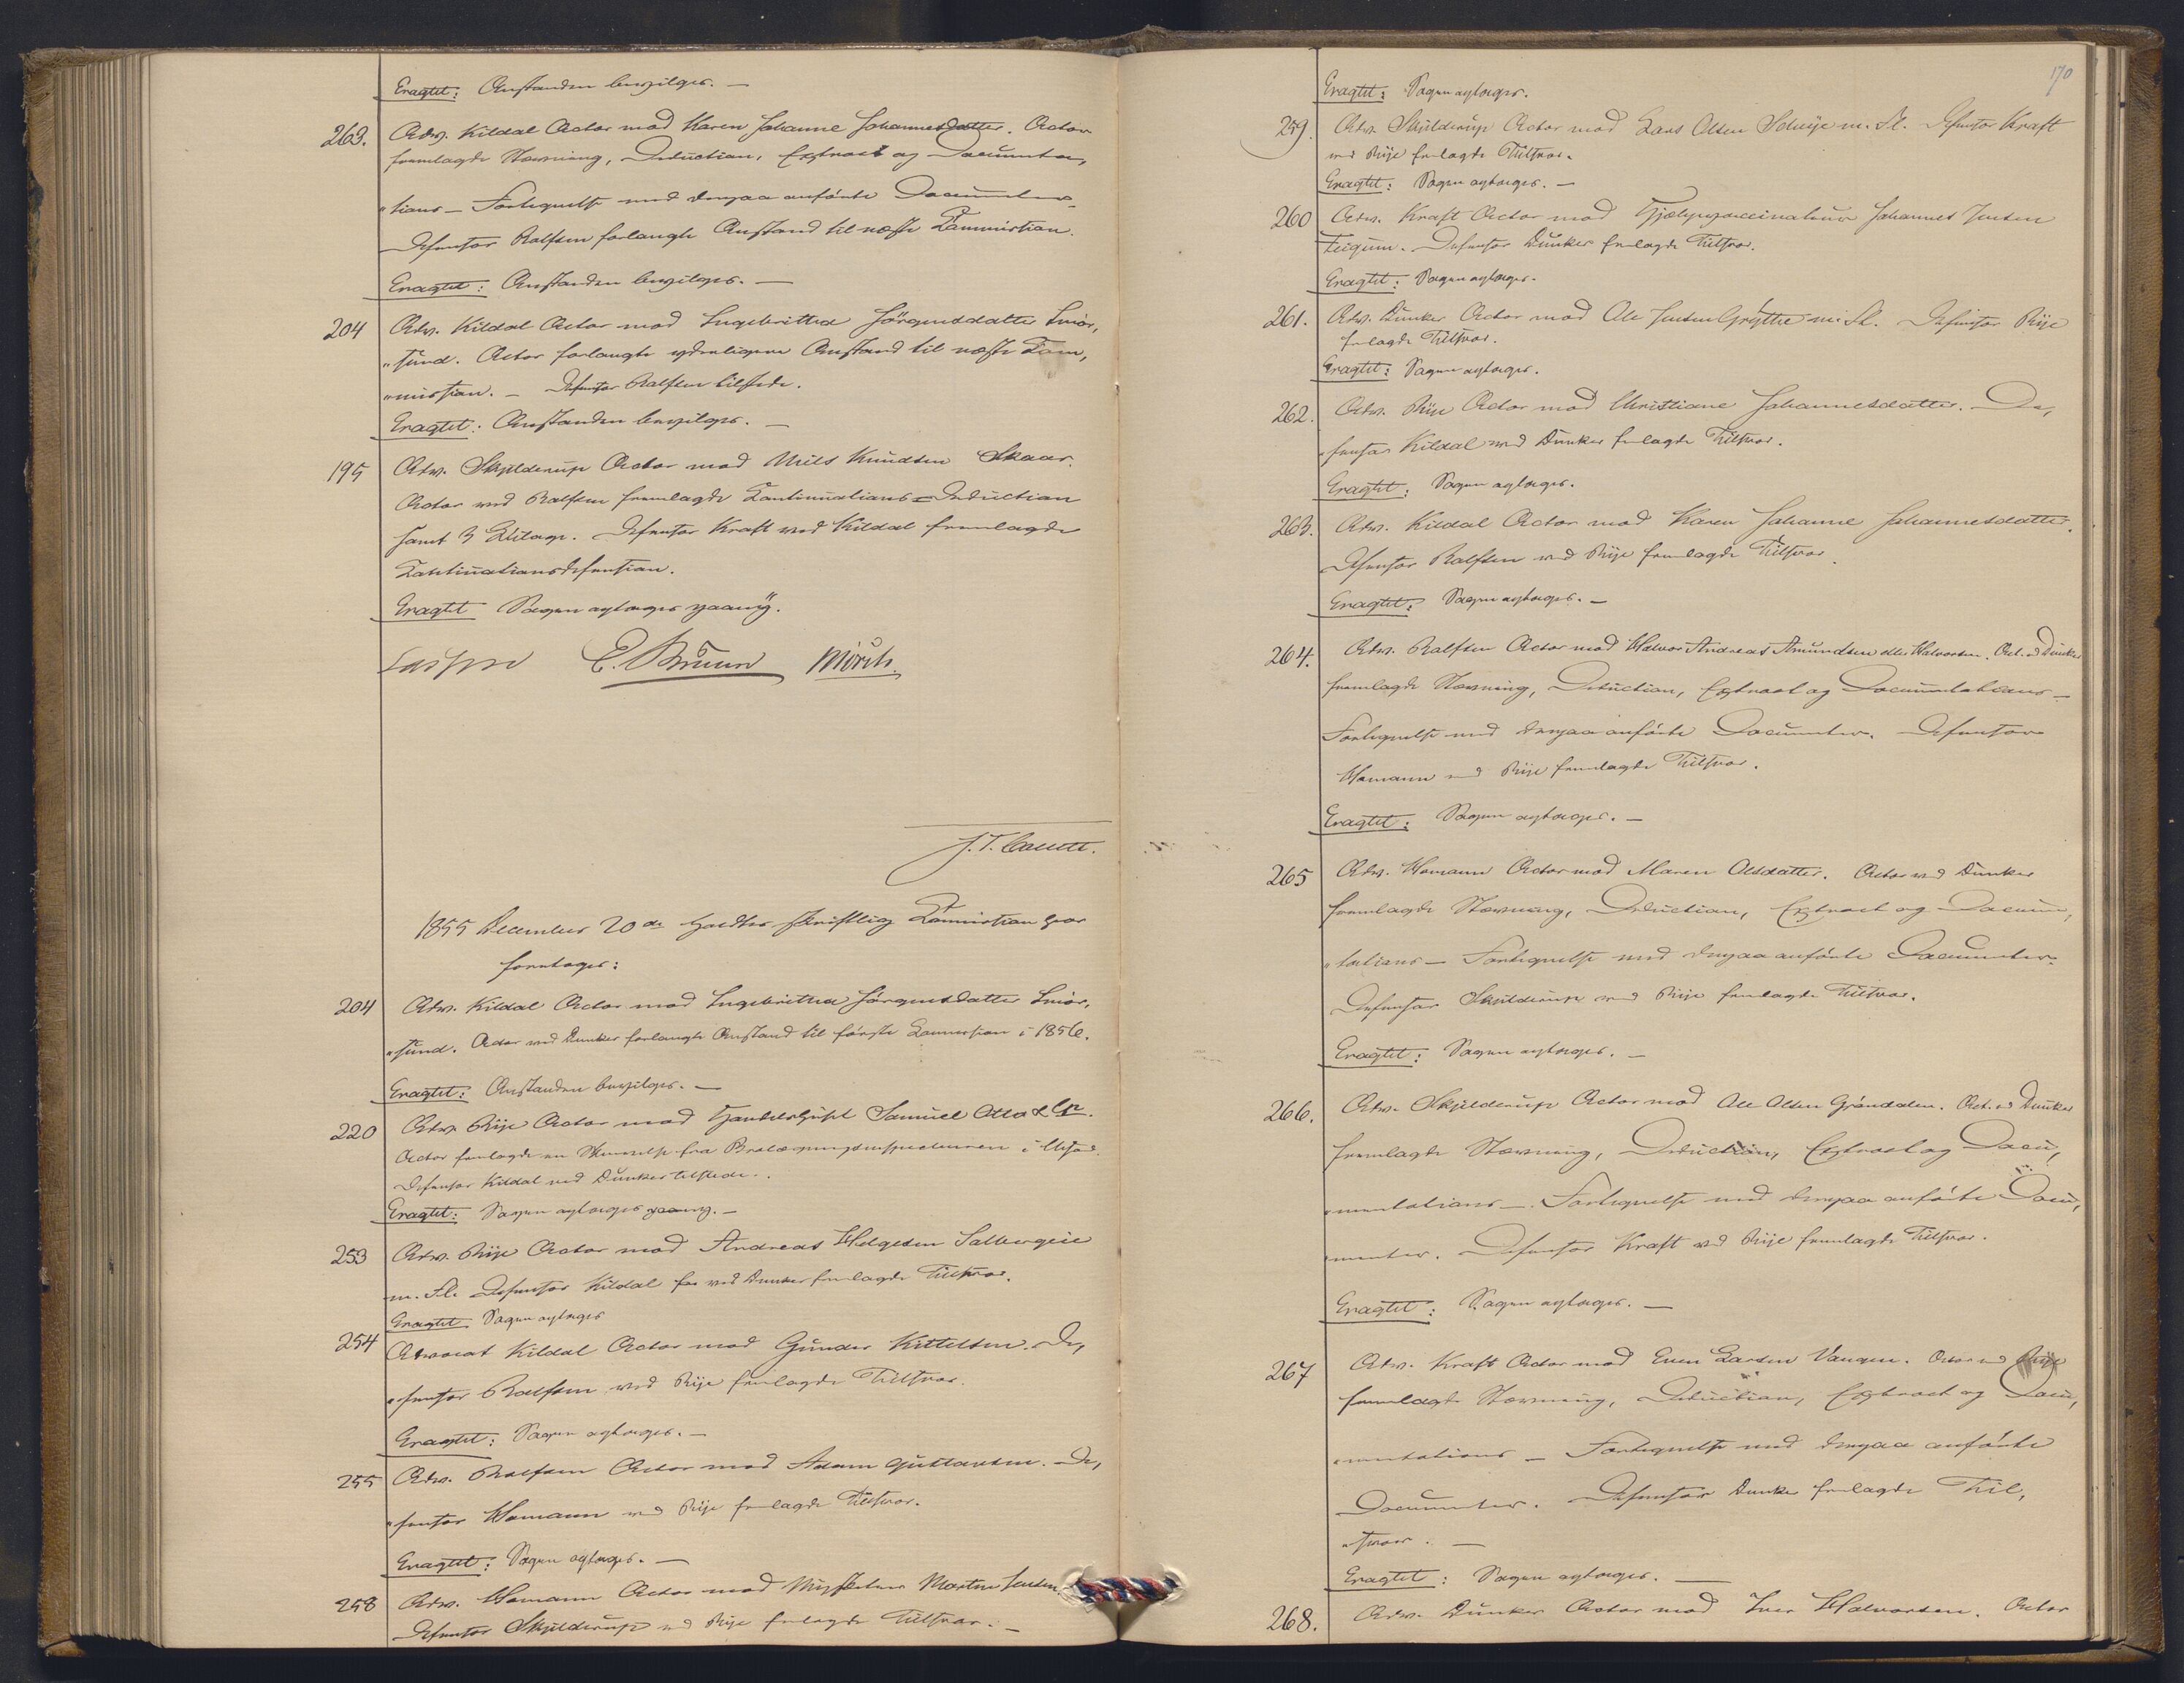 Eragtet: Anstanden bevilges. —
263. Adv. Kildal Actor mod Karen Johanne Johannesdatter. Actor
fremlagde Stævning, Deduction, Extract og Documenta,
"tions – Fortegnelse med derpaa anførte Documenter.
Defensor Ralfsen forlangte Anstand til næste Session.
Eragtet: Anstanden bevilges. —
204 Adv. Kildal Actor mod Ingebrithe Jørgensdatter
"sund. Actor forlangte yderligere Anstand til næste
Defensor Ralfsen tilstede.
Eragtet: Anstanden bevilges. —
195 Adv. Skjelderup Actor mod Niels Knudsen Skaar.
Actor ved Ralfsen fremlagde Continuations-Deduction
samt 3 Bilage. Defensor Kraft ved Kildal fremlagde
Continuationsdefension.
Eragtet Sagen optages paany.
Lasson E. Bruun Mørch.
J. T. Cautt.
1855 December 20de holdtes skriftlig hvor
foretoges:
204 Adv. Kildal Actor mod Ingebrithe Jørgensdatter
"sund. Actor ved Dunker forlangte Anstand til første i 1856.
Eragtet: Anstanden bevilges. —
220 Adv. Rije Actor mod Handelshuset Samuel Otto & Co.
Actor fremlagde en Skrivelse fra
Defensor Kildal ved Dunker tilstede.
Eragtet: Sagen optages paany. —
253 Adv. Rije Actor mod Andreas Helgesen
m. Fl. Defensor Kildal ved Dunker fremlagde Tilsvar.
Eragtet Sagen optages
254 Advocat Kildal Actor mod Gunder Kittelsen. De,
"fensor Ralfsen ved Rije fremlagde Tilsvar.
Eragtet: Sagen optages. —
255 Adv. Ralfsen Actor mod Adam Gustavsen. De,
"fensor Homann ved Rije fremlagde Tilsvar.
Eragtet: Sagen optages. —
258 Adv. Homann Actor mod Morten Jensen.
Defensor Skjelderup ved Rije fremlagde Tilsvar. —
170
Eragtet: Sagen optages.
259. Adv. Skjelderup Actor mod Lars Olsen m. Fl. Defensor Kraft
ved Rije fremlagde Tilsvar.
Eragtet: Sagen optages. —
260 Adv. Kraft Actor mod Hjælpevaccinateur Johannes Jensen
Feigum. Defensor Dunker fremlagde Tilsvar.
Eragtet: Sagen optages.
261. Adv. Dunker Actor mod Ole Jensen Grøtthe m. Fl. Defensor Rije
fremlagde Tilsvar.
Eragtet: Sagen optages.
262. Adv. Rije Actor mod Christiane Johannesdatter. De,
"fensor Kildal ved Dunker fremlagde Tilsvar.
Eragtet: Sagen optages.
263. Adv. Kildal Actor mod Karen Johanne Johannesdatter.
Defensor Ralfsen ved Rije fremlagde Tilsvar.
Eragtet: Sagen optages. —
264. Adv. Ralfsen Actor mod Halvor Andreas Amundsen eller Halvorsen. Act. v. Dunker
fremlagde Stævning, Deduction, Extract og Documentations –
Fortegnelse med derpaa anførte Documenter. Defensor
Homann ved Rije fremlagde Tilsvar.
Eragtet: Sagen optages. —
265 Adv. Homann Actor mod Maren Olsdatter. Actor ved Dunker
fremlagde Stævning, Deduction, Extract og Documen,
"tations – Fortegnelse med derpaa anførte Documenter.
Defensor Skjelderup ved Rije fremlagde Tilsvar.
Eragtet: Sagen optages. —
266. Adv. Skjelderup Actor mod Ole Olsen Grøndalen. Act. v. Dunker
fremlagde Stævning, Deduction, Extract og Docu,
"mentations – Fortegnelse med derpaa anførte Docu,
"menter. Defensor Kraft ved Rije fremlagde Tilsvar.
Eragtet: Sagen optages. —
267 Adv. Kraft Actor mod Even Larsen Vangen. Actor ved Rije
fremlagde Stævning, Deduction, Extract og Docu,
"mentations – Fortegnelse med derpaa anførte
Documenter. Defensor Dunker fremlagde Til,
"svar. —
Eragtet: Sagen optages. —
268. Adv. Dunker Actor mod Iver Halvorsen. Actor